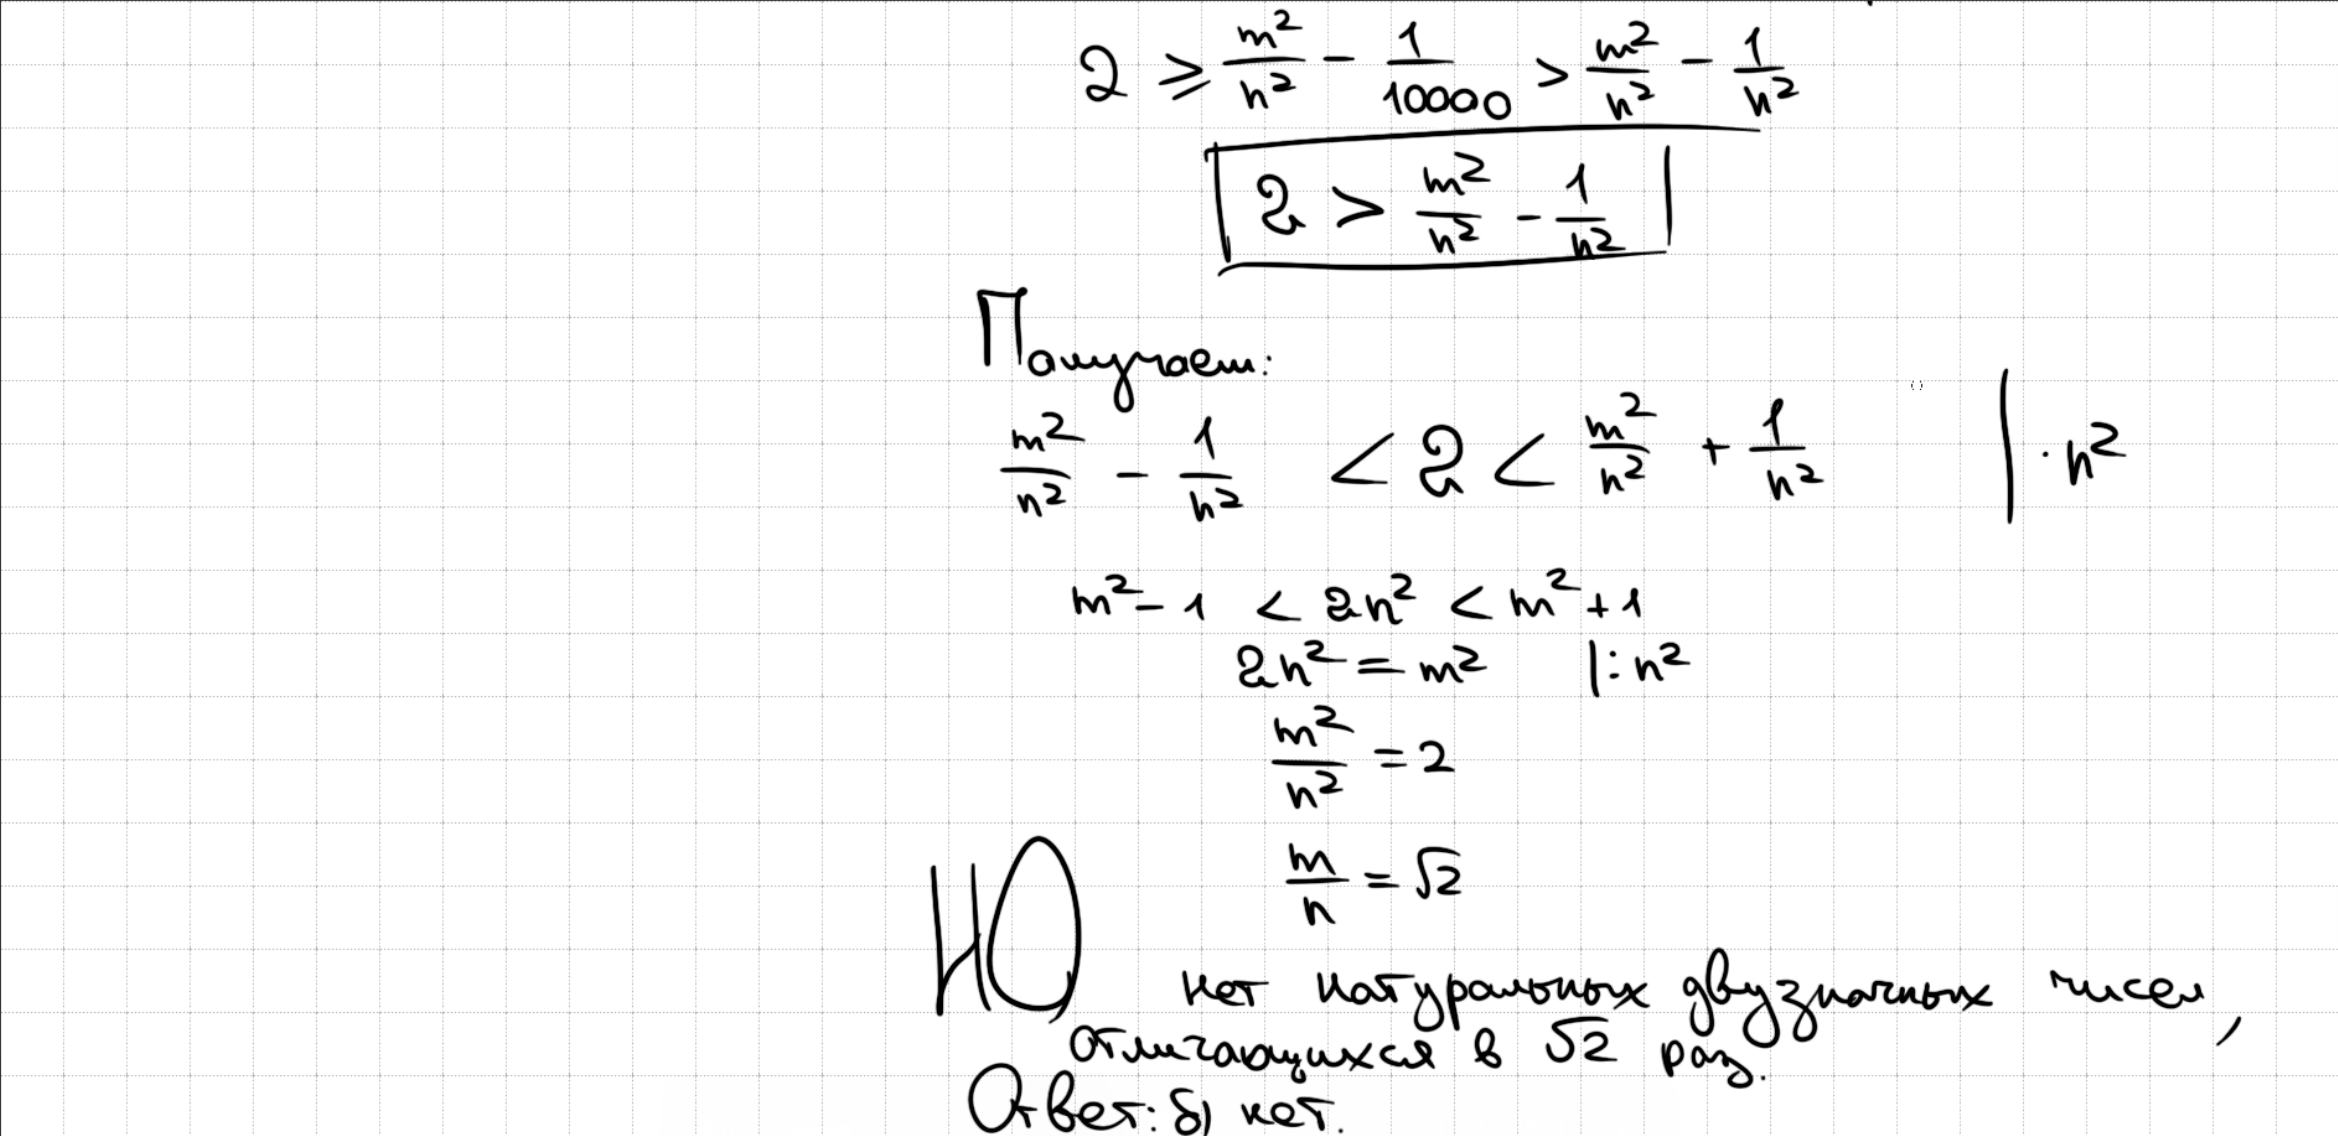 2 ≥ m²/n² - 1/10000 > m²/n² - 1/n²
2 > m²/n² - 1/n²
Получаем:
m²/n² - 1/n² < 2 < m²/n² + 1/n² | · n²
m² - 1 < 2n² < m² + 1
2n² = m² |: n²
m²/n² = 2
m/n = √2
НО нет натуральных двузначных чисел,
отличающихся в √2 раз.
Ответ: б) нет.